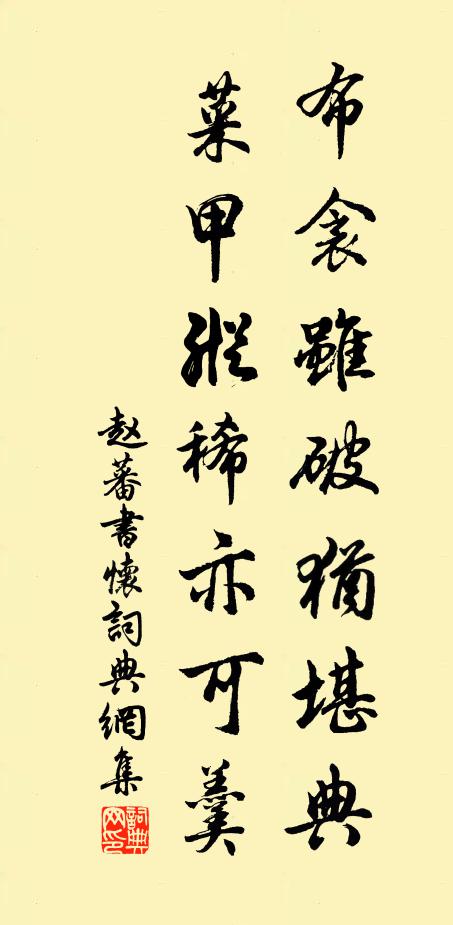 布衾雖破猶堪典
菜甲縱稀亦可羹
赵蕃書懷詞典網集
詞典網印